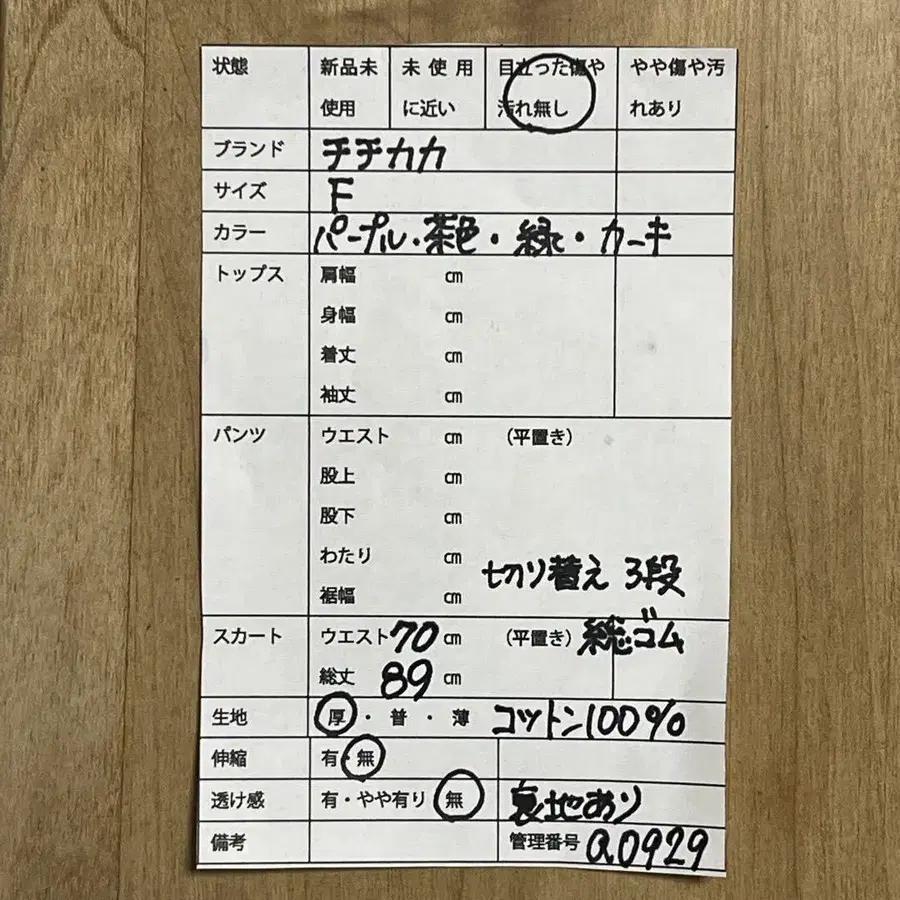 状態 新品未使用 未使用に近い 目立った傷や汚れ無し やや傷や汚れあり
ブランド チチカカ
サイズ F
カラー パープル・茶色・緑・カーキ
トップス 肩幅 cm
身幅 cm
着丈 cm
袖丈 cm
パンツ ウエスト cm (平置き)
股上 cm
股下 cm
わたり cm 切り替え 3段
裾幅 cm
スカート ウエスト70cm (平置き) 総ゴム
総丈 89 cm
生地 厚・普・薄 コットン100%
伸縮 有・無
透け感 有・やや有り 無 裏地あり
備考 管理番号 a0929